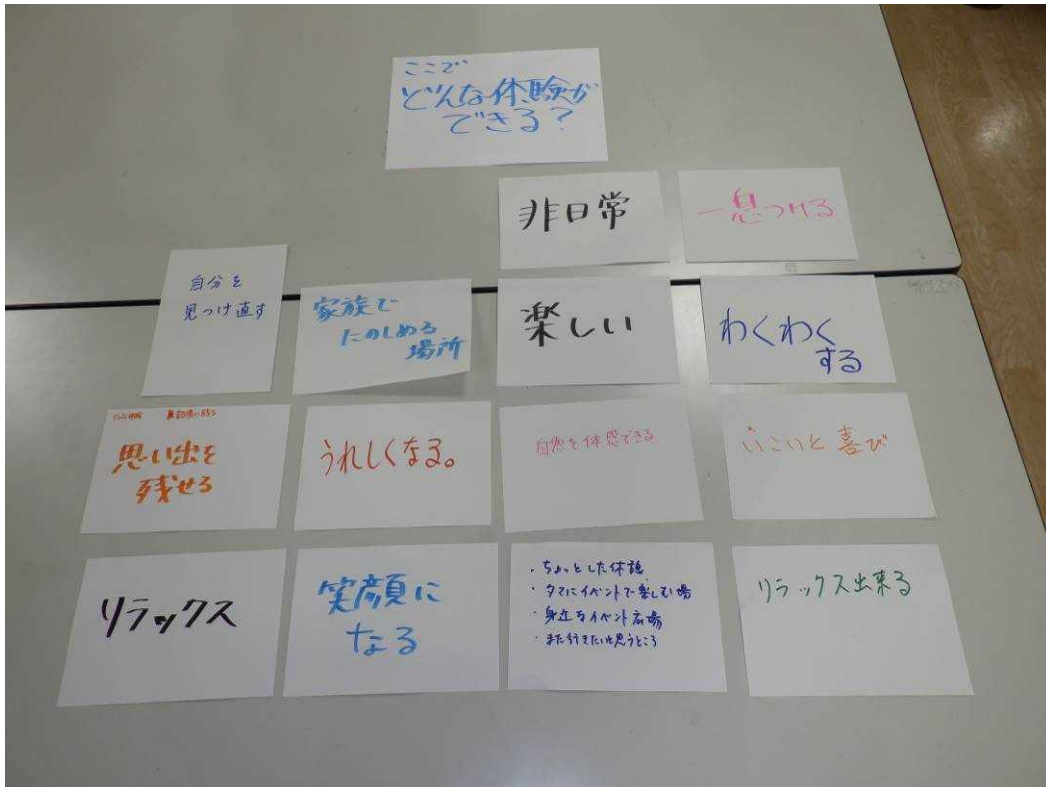 ここで
どんな体験が
できる?
非日常
一息つける
自分を
見つけ直す
家族で
たのしめる
場所
楽しい
わくわく
する
印象に残る
思い出を
残せる
うれしくなる。
自然を体感できる
いこいと喜び
リラックス
笑顔に
なる
・ちょっとした休憩
・タマにイベントで楽しむ場
・身近なイベント広場
・また行きたいと思うところ
リラックス出来る